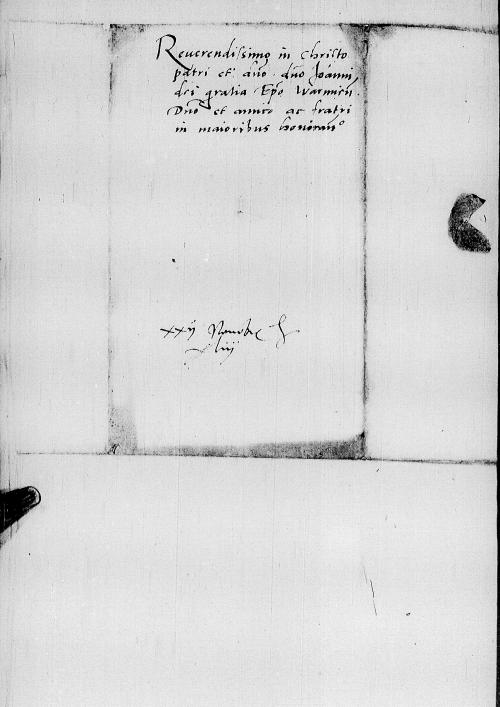 Reuerendissimo in Christo
patri et dno. dno Joanni
dei gratia Epo Warmien.
Dno et amico ac fratri
in maioribus honoran°
xxij Nouebr
xliij